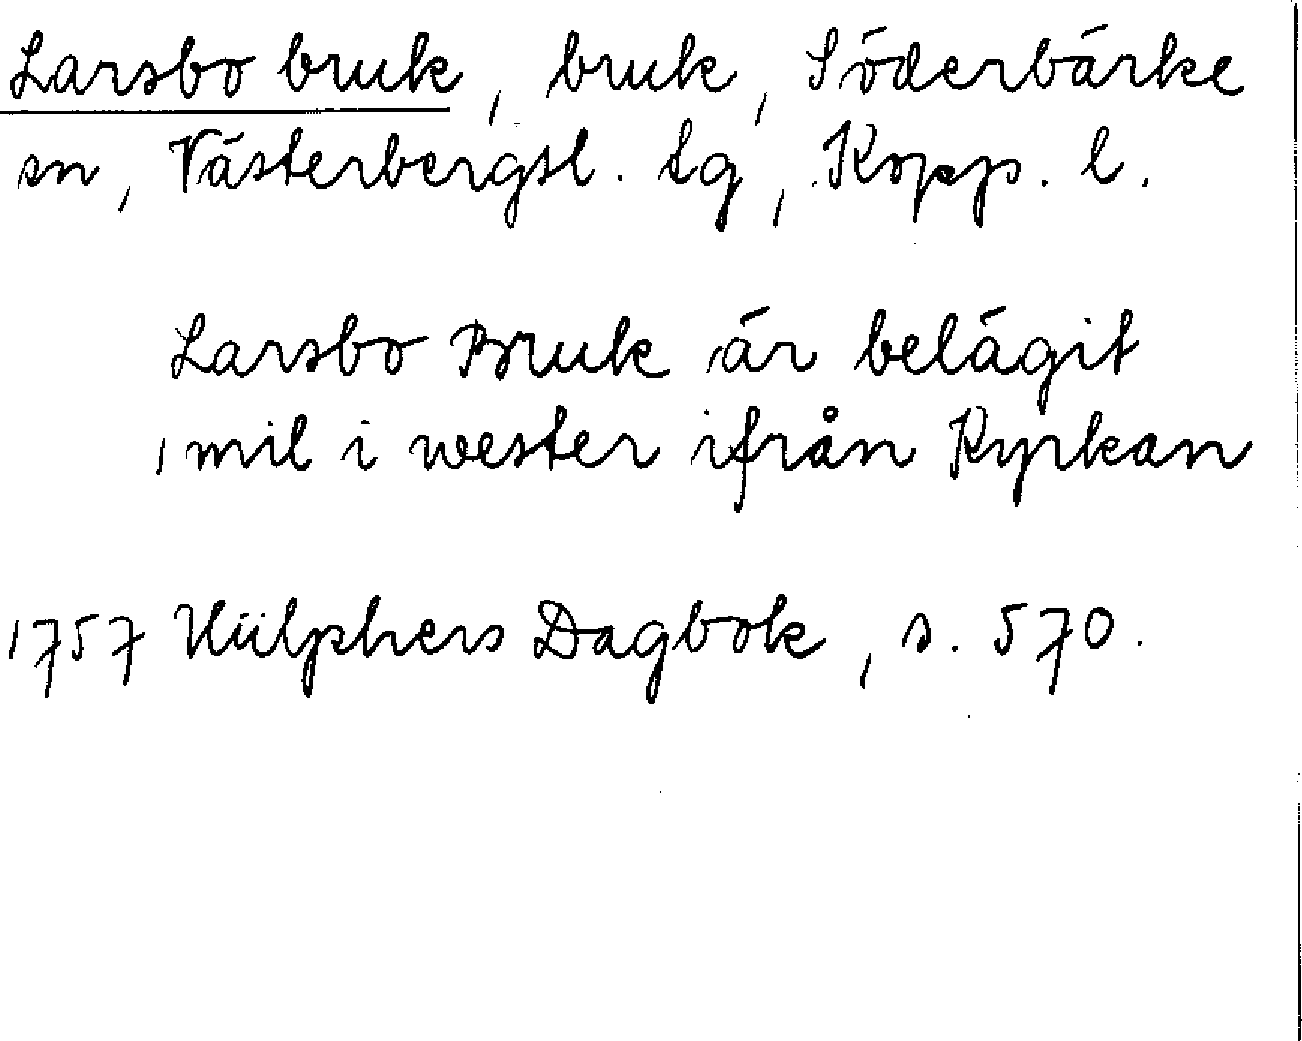 Larsbo bruk, bruk, Söderbärke
sn, Västerbergsl. tg, Kopp. l.
Larsbo Bruk är belägit
1 mil i wester ifrån Kyrkan
1757 Hülphers Dagbok, s. 570.